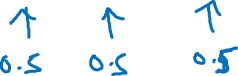 ↑ ↑ ↑
0.5 0.5 0.5